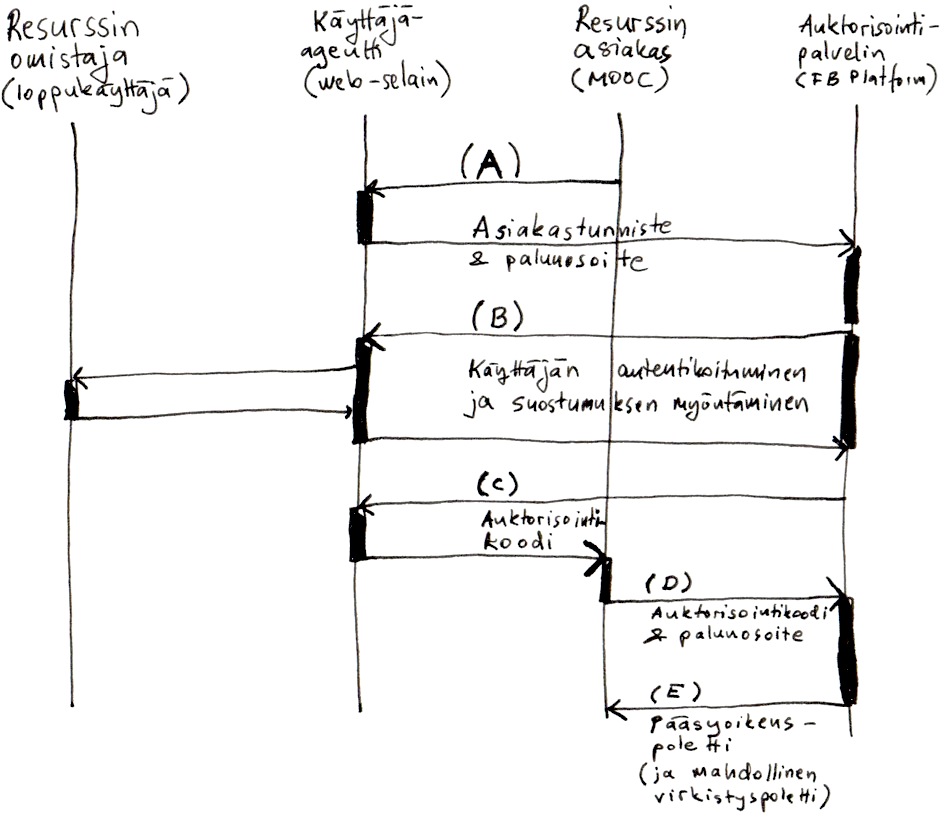 Resurssin
omistaja
(loppukäyttäjä)
Käyttäjä-
agentti
(web-selain)
Resurssin
asiakas
(MOOC)
Auktorisointi-
palvelin
(FB Platform)
(A)
Asiakastunniste
& paluuosoite
(B)
Käyttäjän autentikoituminen
ja suostumuksen myöntäminen
(C)
Auktorisointi-
koodi
(D)
Auktorisointikoodi
& paluuosoite
(E)
Pääsyoikeus-
poletti
(ja mahdollinen
virkistyspoletti)